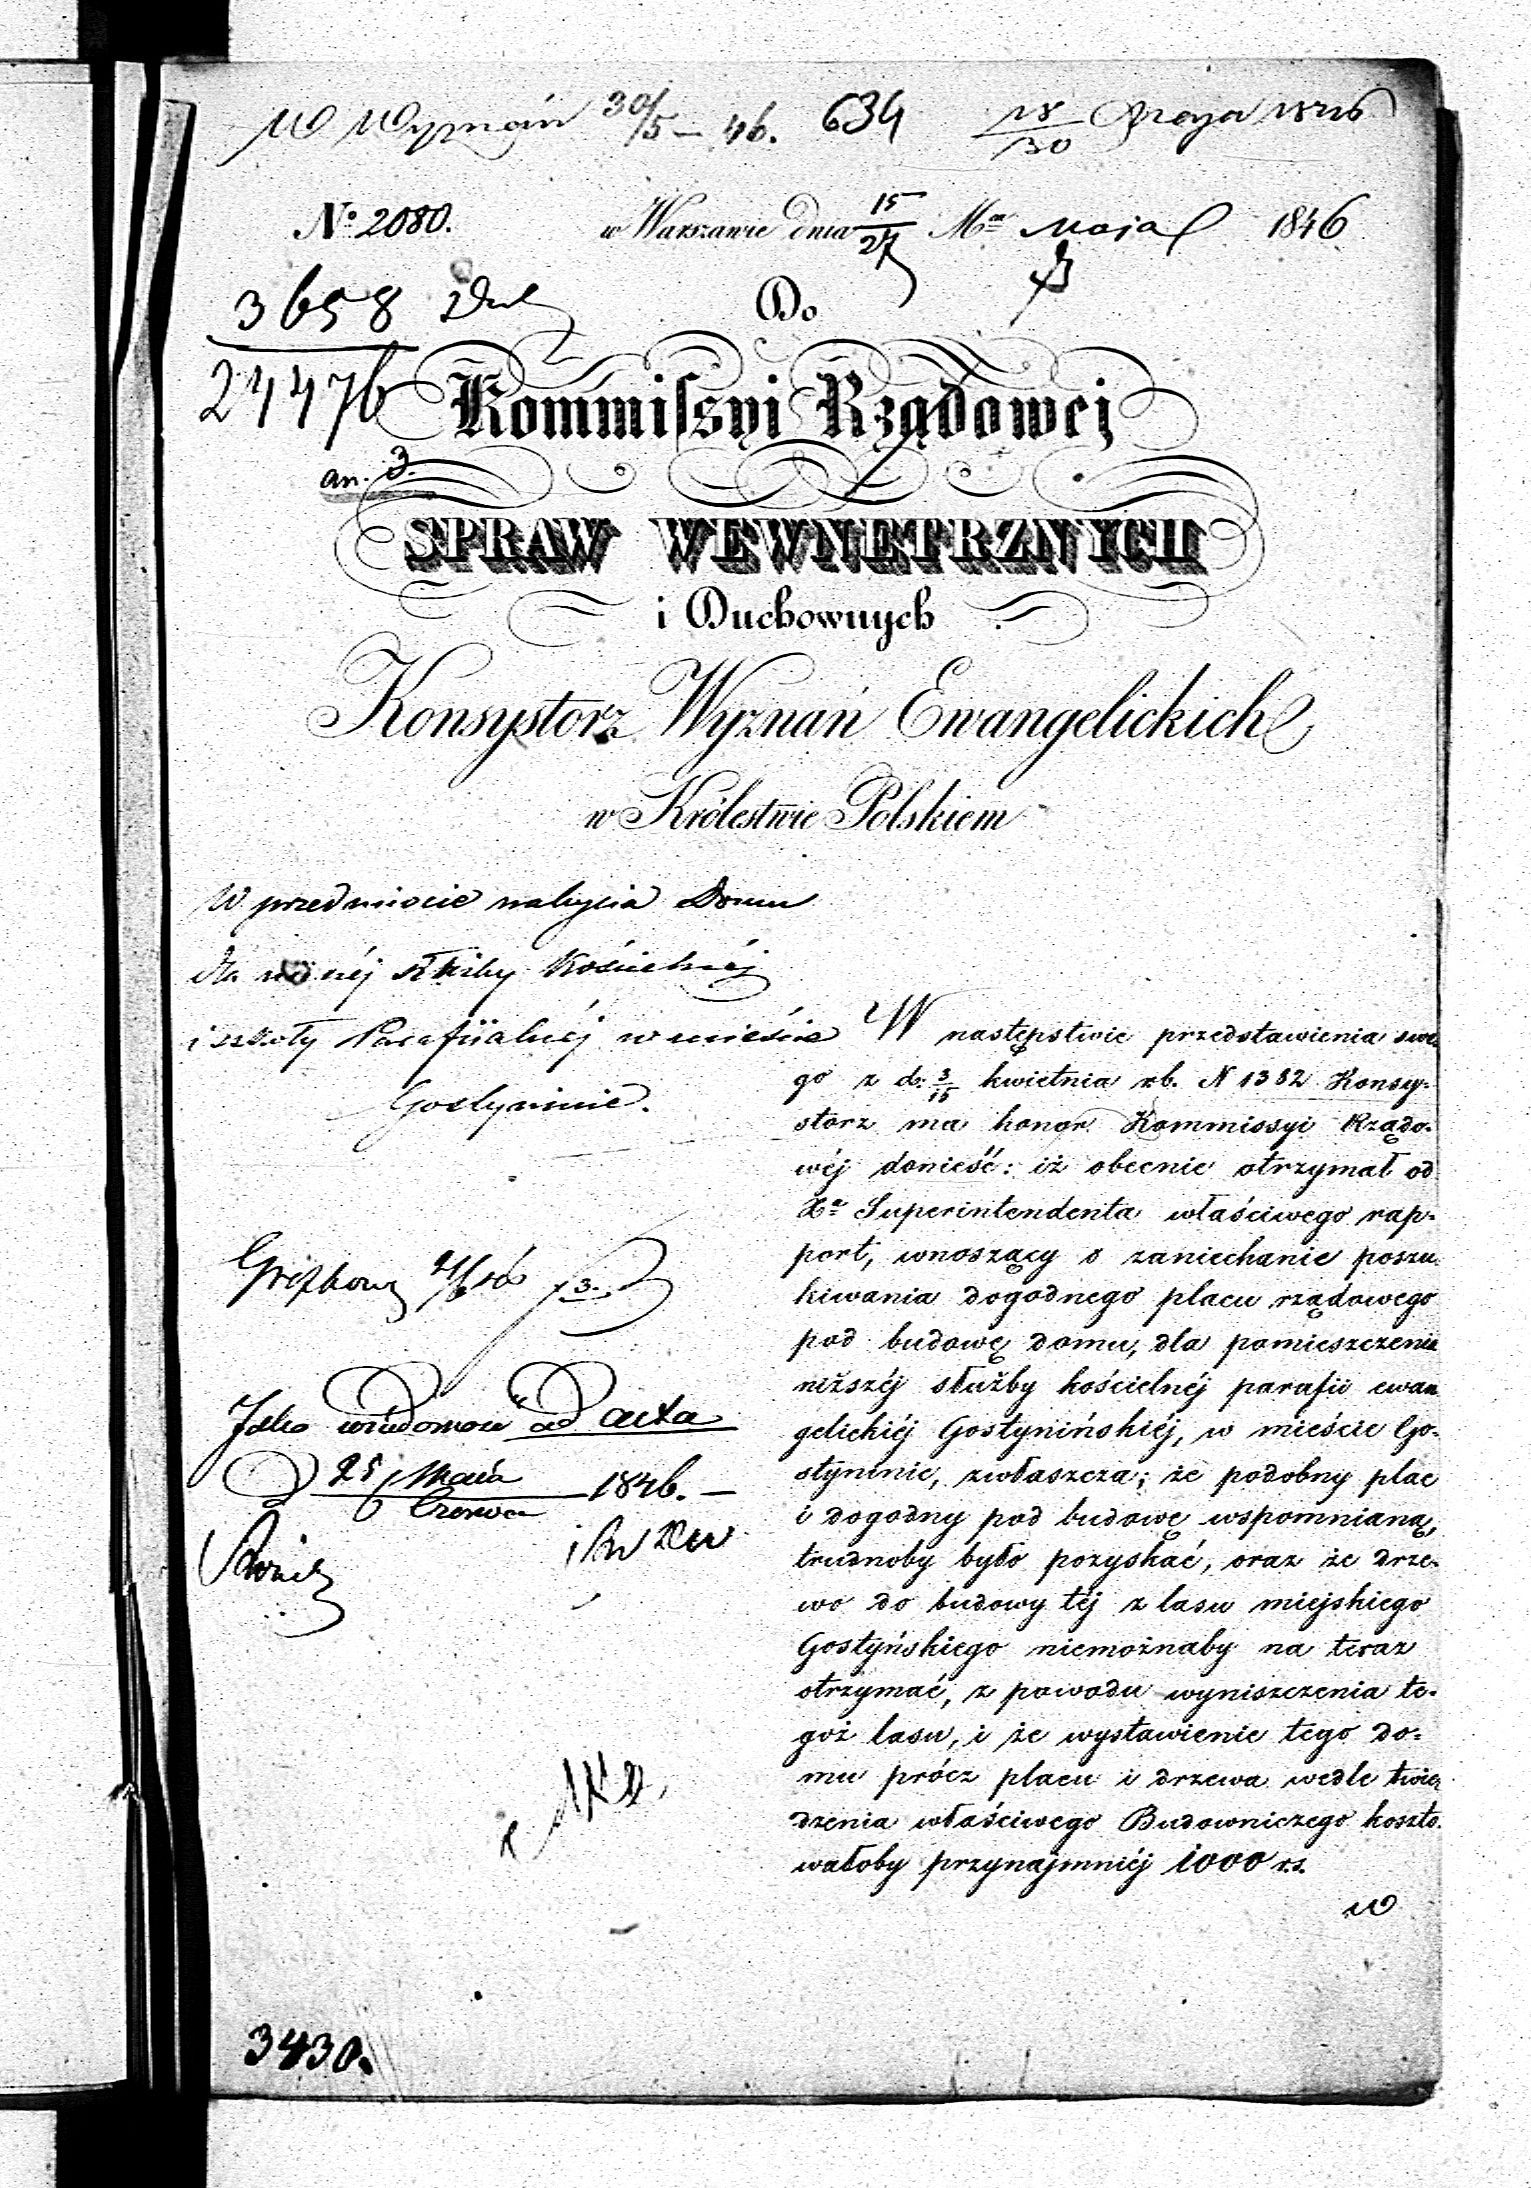 W Wyznań 30/5 - 46. 634 18/30 Maja 1846
No 2080. w Warszawie dnia 15/27 Mca Maja 1846
3658
24476
an. 3.
Do
Kommissyi Rządowej
SPRAW WEWNĘTRZNYCH
i Duchownych
Konsystorz Wyznań Ewangelickich
w Królestwie Polskiem
W przedmiocie nabycia Domu
dla niższéj służby Kościelnéj
i szkoły Parafiialnéj w mieście
Gostyninie.
W następstwie przedstawienia swe-
go z d. 3/15 kwietnia r.b. N 1382 Konsy-
storz ma honor Kommissyi Rządo-
wéj donieść: iż obecnie otrzymał od
Xa Superintendenta właściwego rap-
port, wnoszący o zaniechanie poszu-
kiwania dogodnego placu rządowego
pod budowę domu, dla pomieszczenia
niższéj służby kościelnéj parafii ewan
gelickiéj Gostynińskiéj, w mieście Go-
styninie, zwłaszcza; że podobny plac
i dogodny pod budowę wspomnianą,
trudnoby było pozyskać, oraz że drze-
wo do budowy téj z lasu miejskiego
Gostyńskiego niemożnaby na teraz
otrzymać, z powodu wyniszczenia te-
goż lasu, i że wystawienie tego do-
mu prócz placu i drzewa wedle twier
dzenia właściwego Budowniczego koszto-
wałoby przynajmniéj 1000 r.s.
w
Jako wiadomość ad acta
25 Maja / 6 Czerwca 1846. -
3430.